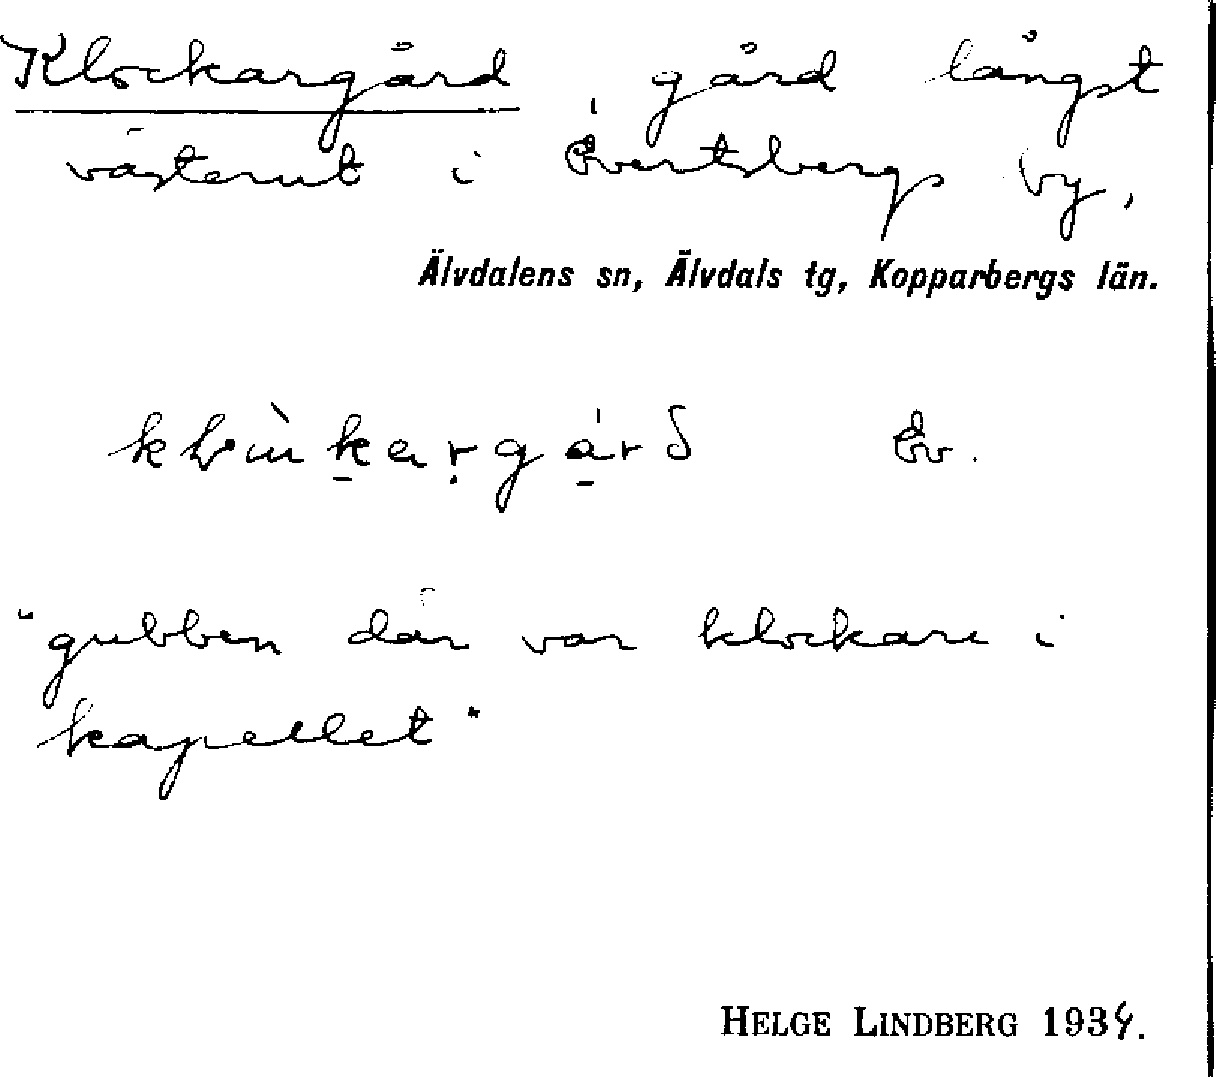 Klockargård, gård långst
västerut i Evertsbergs by,
Älvdalens sn, Älvdals tg, Kopparbergs län.
Ev.
"gubben där var klockare i
kapellet"
HELGE LINDBERG 1934.